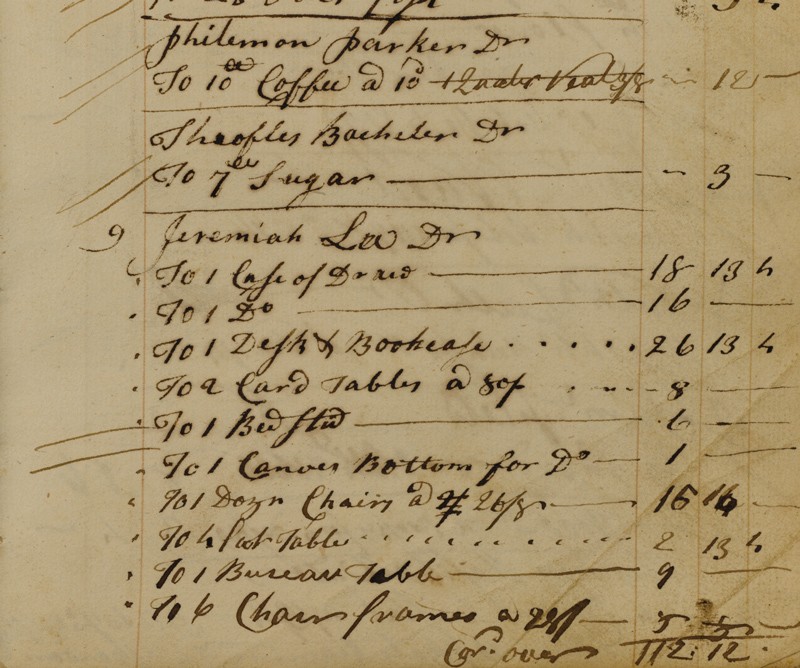 Philemon Parker Dr
To 10 lb Coffee a 10d - 12 -
Theofles Bacheler Dr
To 7 lb Sugar - 3 -
9 Jeremiah Le Dr
To 1 Case of Draws 18 13 4
To 1 Do 16 -
To 1 Desk & Bookcase 26 13 4
To 2 Card Tables a 80/ 8 -
To 1 Bed Sted 6 -
To 1 Canves Bottom for Do 1 -
To 1 Dozn Chairs a 26/8 16 -
To 4 foot Table 2 13 4
To 1 Bureau Table 9 -
To 6 Chair frames a 5
Car.d over 112 12